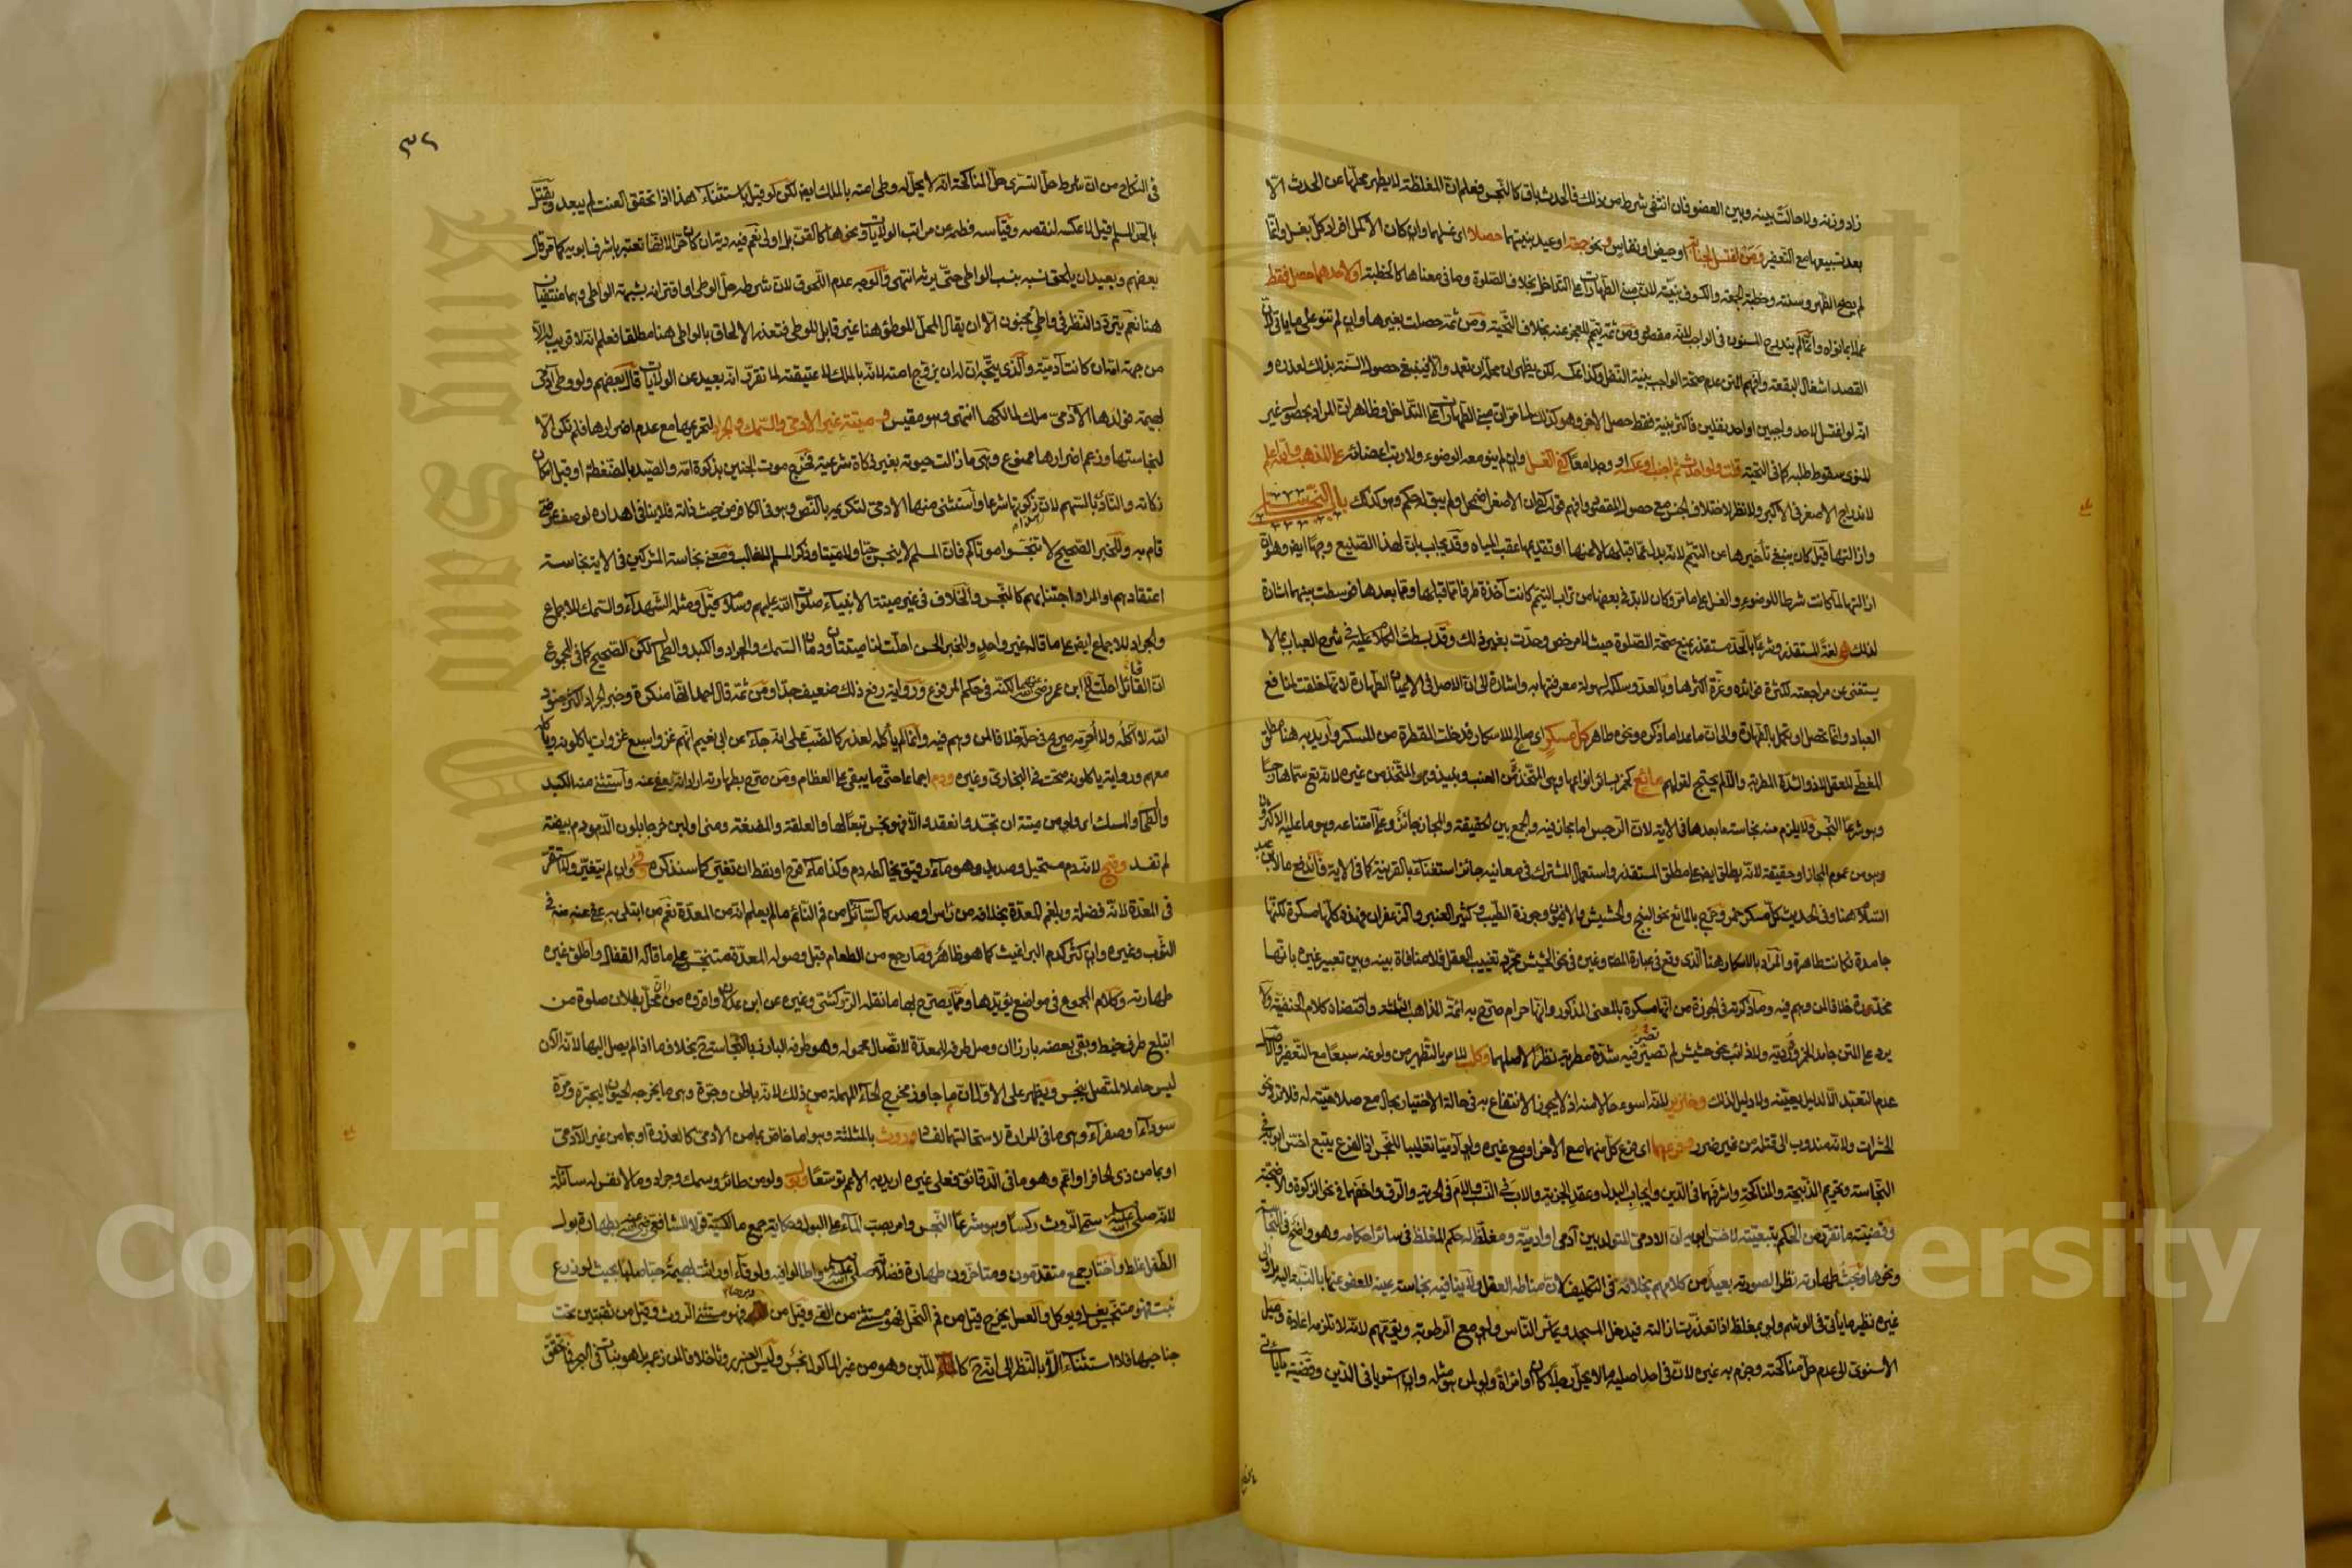 زاد وزنه ولا حالت بينه وبين العضو فان انتفى شرط من ذلك فالحدث باق كالنجس فعلم ان المغلظة لا يطهر محلها عن الحدث الا
بعد تسبيعها مع التعفير ومن اغتسل لجنابة او حيض او نفاس ونحو جمعة او عيد بنيتهما حصلا اى غسلهما وان كان الاكمل افراد كل بغسل وانما
لم يصح الظهر وسنته وخطبة الجمعة والكسوف بنية لان مبنى الطهارات على التداخل بخلاف الصلوة وما فى معناها كالخطبة او لاحدهما حصل فقط
عملا بما نواه وانما لم يندرج المسنون فى الواجب لانه مقصود ومن ثمة تيمم للعجز عنه بخلاف التحية ومن ثمة حصلت بغيرها وان لم تنو على ما يأتى لان
القصد اشغال البقعة وافهم المتن عدم صحة الواجب بنية النفل وكذا عكسه لكن يظهر ان محله ان تعمد والا فينبغى حصول السنة بذلك لعذره و
انه لو اغتسل لاحد واجبين او احد نفلين فاكثر بنية فقط حصل الاخر وهو كذلك لما مر ان مبنى الطهارات على التداخل وظاهر ان المراد بحصول غير
المنوى سقوط طلبه كما فى التحية قلت ولو احدث ثم اجنب او عكسه او وجدا معا كفى الغسل وان لم ينو معه الوضوء ولا رتب اعضائه على المذهب والله اعلم
لاندراج الاصغر فى الاكبر ولا نظر لاختلاف الجنس مع حصول المقصود وافهم قوله كفى ان الاصغر اضمحل ولم يبق له حكم وهو كذلك باب النجاسة
وازالتها قيل كان ينبغى تأخيرها عن التيمم لانه بدل عما قبلها لا عنها او تقديمها عقب المياه وقد يجاب بان لهذا الصنيع وجها ايضا وهو ان
ازالتها لما كانت شرطا للوضوء والغسل على ما مر وكان لا بد فى بعضها من تراب التيمم كانت آخذة طرفا مما قبلها ومما بعدها فتوسطت بينهما اشارة
لذلك هى لغة المستقذر وشرعا بالحد مستقذر يمنع صحة الصلوة حيث لا مرخص وحدت بغير ذلك وقد بسطت الكلام عليه فى شرح العباب بما لا
يستغنى عن مراجعته لكثرة فوائده وعزة اكثرها وبالعد وسلكه لسهولة معرفتها به واشارة الى ان الاصل فى الاعيان الطهارة لانها خلقت لمنافع
العباد وانما تحصل او تكمل بالطهارة والى ان ما عدا ما ذكره ونحوه طاهر كل مسكر اى صالح للاسكار فدخلت القطرة من المسكر واريد به هنا مطلق
المغطى للعقل لا ذو الشدة المطربة والا لم يحتج لقولهم مائع كخمر بسائر انواعها وهى المتخذة من العنب ونبيذ وهو المتخذ من غيره لانه تع سماها رجسا
وهو شرعا النجس ولا يلزم منه نجاسة ما بعدها فى الاية لان الرجس اما مجاز فيه والجمع بين الحقيقة والمجاز جائز وعلى امتناعه وهو ما عليه الاكثرون
وهو من عموم المجاز او حقيقة لانه يطلق ايضا على مطلق المستقذر واستعمال المشترك فى معانيه جائز استغناء بالقرينة كما فى الاية فاندفع ما لابن عبد
السلام هنا وفى الحديث كل مسكر خمر وخرج بالمائع نحو البنج والحشيش والافيون وجوزة الطيب وكثير العنبر والزعفران فهذه كلها مسكرة لكنها
جامدة فكانت طاهرة والمراد بالاسكار هنا الذى وقع فى عبارة المص وغيره فى نحو الحشيش مجرد تغييب العقل فلا منافاة بينه وبين تعبير غيره بانها
مخدرة خلافا لمن وهم فيه وما ذكرته فى الجوزة من انها مسكرة بالمعنى المذكور وانها حرام صرح به ائمة المذاهب الثلثة واقتضاه كلام الحنفية ولا
يرد على المتن جامد الخمر ودرديه ولا ذائب نحو حشيش لم تصر فيه شدة مطربة نظرا لاصلهما وكلب للامر بالتطهير من ولوغه سبعا مع التعفير والاصل
عدم التعبد الا لدليل يعينه ولا دليل لذلك وخنزير لانه اسوء حالا منه اذ لا يجوز الانتفاع به فى حالة الاختيار بحال مع صلاحيته له فلا ترد نحو
الحشرات ولانه مندوب الى قتله من غير ضرر وفرعهما اى فرع كل منهما مع الاخر او مع غيره ولو آدميا تغليبا للنجس اذ الفرع يتبع اخس ابويه فى
النجاسة وتحريم الذبيحة والمناكحة واشرفهما فى الدين وايجاب البدل وعقد الجزية والاب فى النسب والام فى الحرية والرق واخفهما فى نحو الزكوة والاضحية
وقضية ما تقرر من الحكم بتبعيته لاخس ابويه ان الادمى المتولد بين آدمى او ادمية ومغلظ له حكم المغلظ فى سائر احكامه وهو واضح فى النجاسة
ونحوها وبحث طهارته نظرا لصورته بعيد من كلامهم بخلافه فى التكليف لان مناطه العقل ولا ينافيه نجاسة عينه للعفو عنها بالنسبة اليه بل والى
غيره نظير ما يأتى فى الوشم ولو بمغلظ اذا تعذرت ازالته فيدخل المسجد ويماس الناس ولو مع الرطوبة ويؤمهم لانه لا تلزمه اعادة ومال
الاسنوى الى عدم حل مناكحته وجزم به غيره لان فى احد اصليه ما لا يحل رجلا كان او امرأة ولو لمن هو مثله وان استويا فى الدين وقضية ما يأتى
٣٢
فى النكاح من ان شرط حل التسرى حل المناكحة انه لا يحل له وطئ امته بالملك ايضا لكن لو قيل باستثناء هذا اذا تحقق العنت لم يبعد ويقتل
بالحر المسلم قيل لا عكسه لنقصه وقياسه فطمه عن مراتب الولايات ونحوها كالقن بل اولى نعم فيه دية ان كان حرا لانها تعتبر باشرف ابويه كما مر قال
بعضهم وبعيد ان يلحق نسبه بنسب الواطئ حتى يرثه انتهى والوجه عدم اللحوق لان شرطه حل الوطئ او اقترانه بشبهة الواطئ وهما منتفيان
هنا نعم يتردد النظر فى واطئ مجنون الا ان يقال المحل الموطوء هنا غير قابل للوطئ فتعذر الالحاق بالواطئ هنا مطلقا فعلم انه لا قريب له الا
من جهة امه ان كانت آدمية والذى يتجه ان له ان يزوج امته لانه بالملك لا عتيقته لما تقرر انه بعيد عن الولايات قال بعضهم ولو وطئ آدمى
بهيمة فولدها الآدمى ملك لمالكها انتهى وهو مقيس وميتة غير الادمى والسمك والجراد لتحريمها مع عدم اضرارها فلم تكن الا
لنجاستها وزعم اضرارها ممنوع وهى ما زالت حيوته بغير ذكاة شرعية فخرج موت الجنين بذكوة امه والصيد بالضغطة او قبل امكان
ذكاته والناد بالسهم لانه ذكوتها شرعا واستثنى منها الادمى لتكريمه بالنص وهو فى الكافر من حيث ذاته فلا ينافى اهداره لوصف عرضى
قام به وللخبر الصحيح لا تنجسوا موتاكم فان المسلم لا ينجس حيا ولا ميتا وذكر المسلم للغالب ومعنى نجاسة المشركين فى الاية نجاسة
اعتقادهم او المراد اجتنابهم كالنجس والخلاف فى غير ميتة الانبياء صلوات الله عليهم وسلامه قيل ومثله الشهداء والسمك للاجماع
والجراد للاجماع ايضا على ما قاله غير واحد وللخبر الحسن احلت لنا ميتتان ودمان السمك والجراد والكبد والطحال لكن الصحيح كما فى المجموع
ان القائل احلت لنا ابن عمر رضى الله عنهما لكنه فى حكم المرفوع ورواية رفع ذلك ضعيف جدا ومن ثمة قال احمد انها منكرة وخبر الجراد اكثر جنود
الله لا آكله ولا احرمه صريح فى حله خلافا لمن وهم فيه وانما لم يأكله لعذر كالضب على انه جاء عن ابى نعيم انهم غزوا سبع غزوات يأكلونه ويأكله
معهم ورواية يأكلونه صحت فى البخارى وغيره ودم اجماعا حتى ما يبقى على العظام ومن صرح بطهارته اراد انه يعفى عنه واستثنى منه الكبد
والطحال والمسك اى ولو من ميتة ان تجسد وانعقد والا فهو نجس تبعا لها والعلقة والمضغة ومنى او لبن خرجا بلون الدم ودم بيضة
لم تفسد وقيح لانه دم مستحيل وصديد وهو ماء رقيق يخالطه دم وكذا ماء قرح او نفط ان تغير كما سنذكره وقئ وان لم يتغير ولا استقر
فى المعدة لانه فضلة وبلغم المعدة بخلافه من رأس او صدر كالسائل من فم النائم ما لم يعلم انه من المعدة نعم من ابتلى به عفى عنه منه فى
الثوب وغيره وان كثر كدم البراغيث كما هو ظاهر وما رجع من الطعام قبل وصوله المعدة متنجس على ما قاله القفال واطلق غيره
طهارته وكلام المجموع فى مواضع يؤيدها ومما يصرح بها ما نقله الزركشى وغيره عن ابن عدلان واقروه من ان محل بطلان صلوة من
ابتلع طرف خيط وبقى بعضه بارزا ان وصل طرفه للمعدة لاتصال محموله وهو طرفه البارز بالنجاسة بخلاف ما اذا لم يصل اليها لانه الآن
ليس حاملا لمتصل بنجس ويظهر على الاول ان ما جاوز مخرج الحاء المهملة من ذلك لانه باطن وجرة وهى ما يخرجه الحيوان ليجتره ومرة
سوداء او صفراء وهى ما فى المرارة لاستحالتها لفساد وروث بالمثلثة وهو اما خاص بما من الادمى كالعذرة او بما من غير الآدمى
او بما من ذى الحافر او اعم وهو ما فى الدقائق فعلى غيره اريد به الاعم توسعا وبول ولو من طائر وسمك وجراد وما لا نفس له سائلة
لانه صلى الله عليه وسلم سمى الروث ركسا وهو شرعا النجس وامر بصب الماء على البول وحكاية جمع مالكية قولا للشافعى رضى الله عنه بطهارة بول
الطفل غلط واختار جمع متقدمون ومتأخرون طهارة فضلاته صلى الله عليه وسلم واطالوا فيه ولو قاءت او راثت بهيمة حبا صلبا بحيث لو زرع
نبت فهو متنجس يغسل ويؤكل والعسل يخرج قيل من فم النحل فهو مستثنى من القئ وقيل من دبرها فهو مستثنى من الروث وقيل من ثقبتين تحت
جناحيها فلا استثناء الا بالنظر الى انه ح كاللبن وهو من غير المأكول نجس وليس العنبر روثا خلافا لمن زعمه بل هو نبات فى البحر فما تحقق